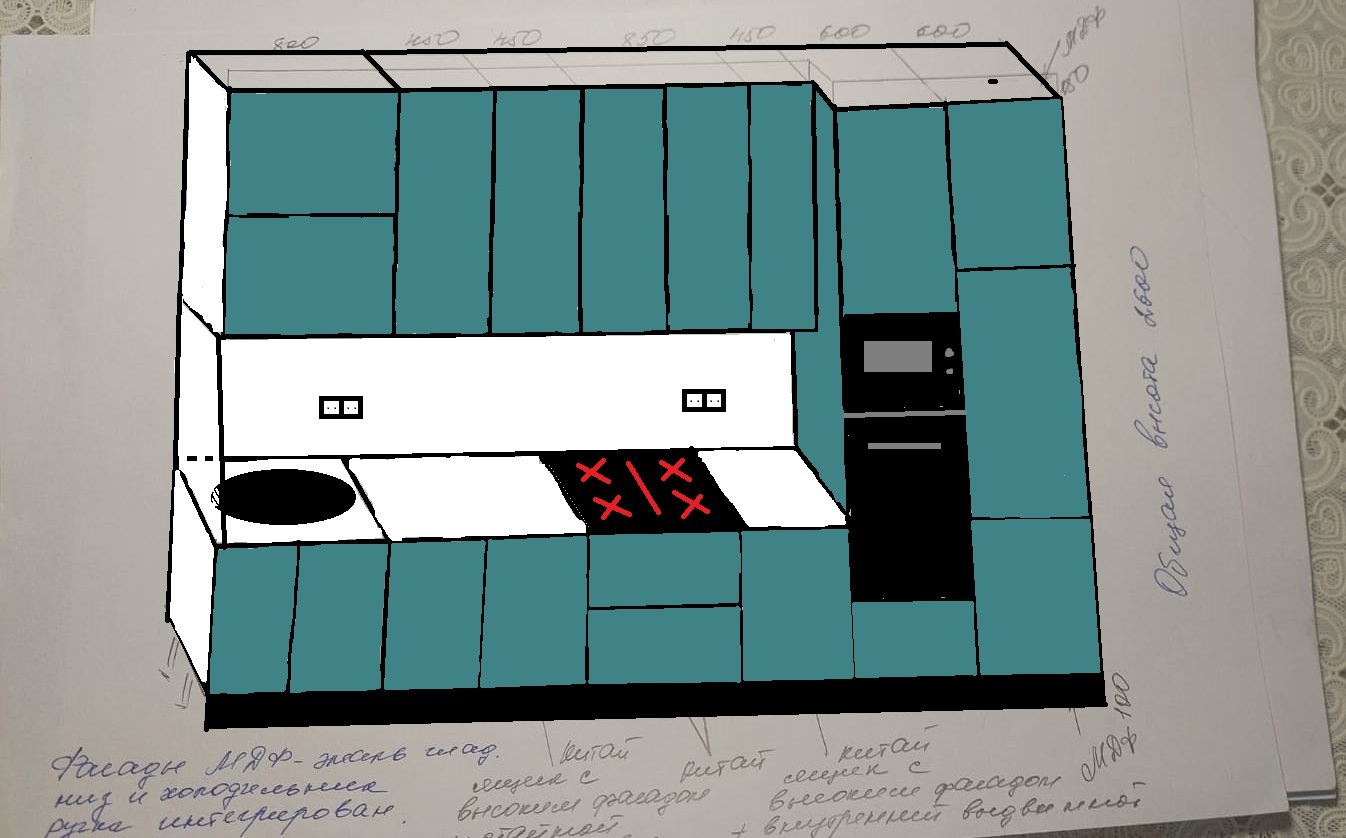 800 450 450 850 450 600 600
МДФ
80
Общая высота 2600
Фасады МДФ-эмаль глад.
низ и холодильник
ручка интегрирован.
Китай
ящик с
высоким фасадом
Китай
Китай
ящик с
высоким фасадом
+ внутренний выдвижной
МДФ 100